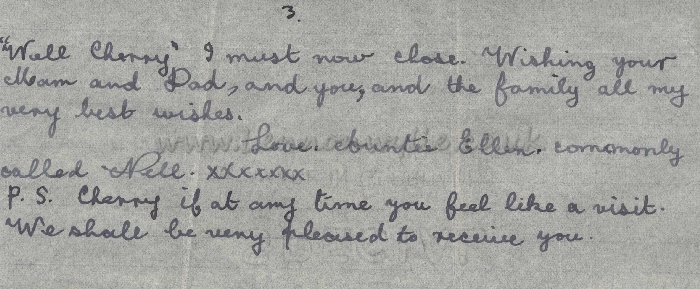 3.
"Well Cherry" I must now close. Wishing your
Mam and Dad, and you, and the family all my
very best wishes.
Love. Auntie Ellen. commonly
called Nell. xxxxxxx
P. S. Cherry if at any time you feel like a visit.
We shall be very pleased to receive you.